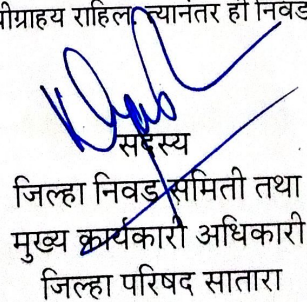 ग्राहय राहिल. त्यानंतर ही निवड
सदस्य
जिल्हा निवड समिती तथा
मुख्य कार्यकारी अधिकारी
जिल्हा परिषद सातारा